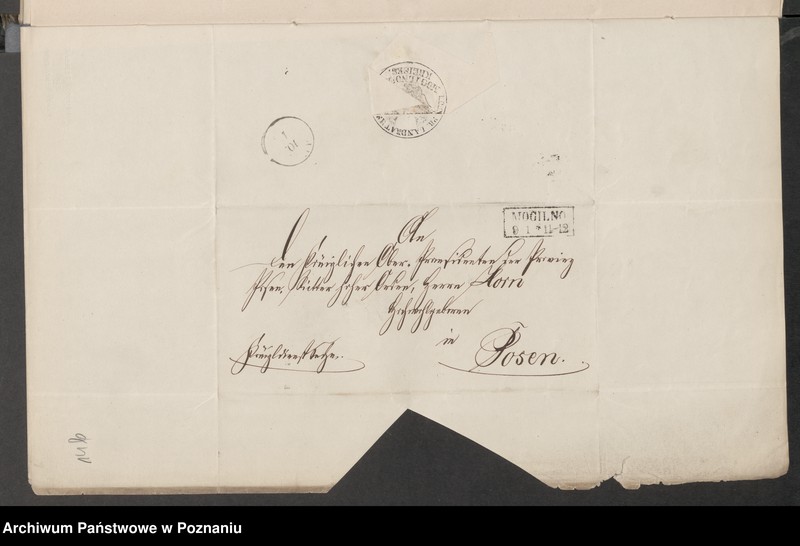 MOGILNO
9 1 * 11-12
An
den Königlichen Ober-Praesidenten der Provinz
Posen, Ritter hoher Orden, Herrn Horn
Hochwohlgeboren
in
Königl. Dienst Sache.
Posen.
Archiwum Państwowe w Poznaniu